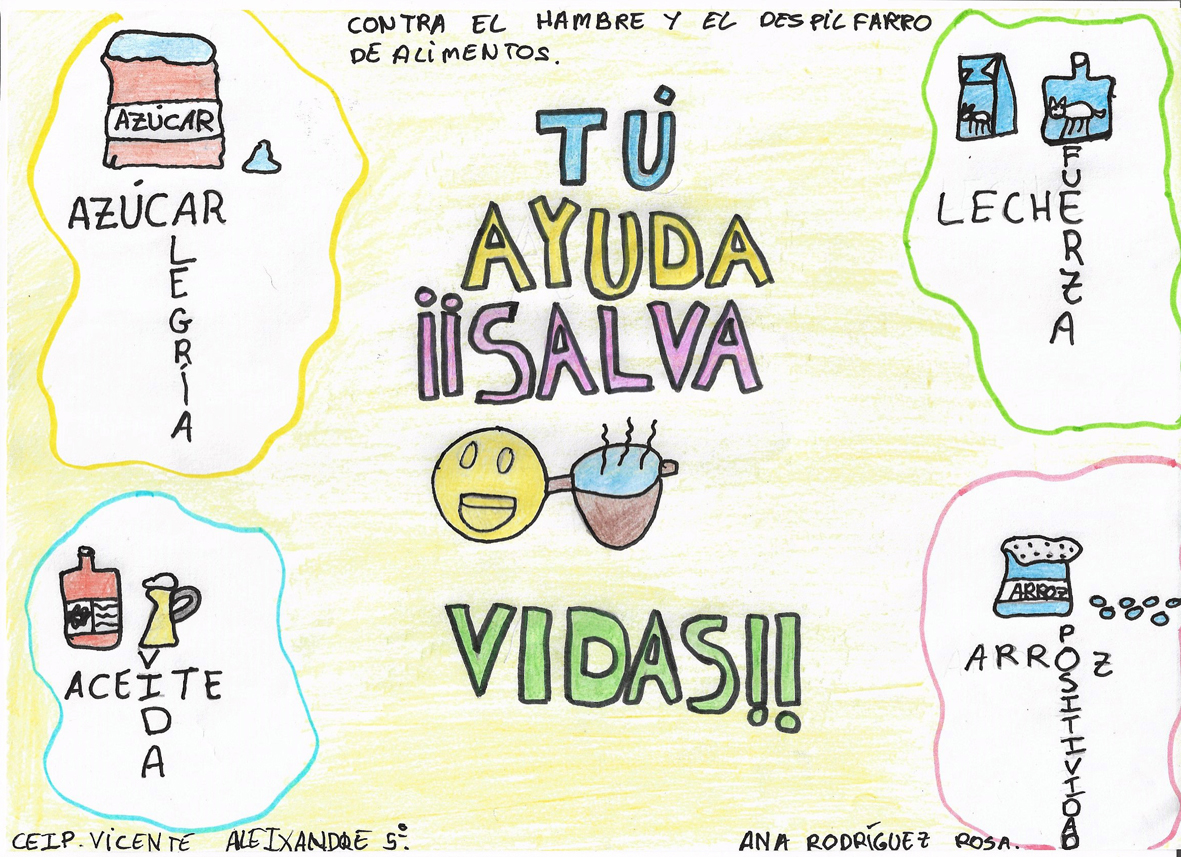 CONTRA EL HAMBRE Y EL DESPILFARRO
DE ALIMENTOS.
AZÚCAR
AZÚCAR
ALEGRÍA
TÚ
AYUDA
¡¡SALVA
VIDAS!!
FUERZA
LECHE
VIDA
ACEITE
ARROZ
ARROZ
POSITIVIDAD
CEIP. VICENTE ALEIXANDRE 5º.
ANA RODRÍGUEZ ROSA.